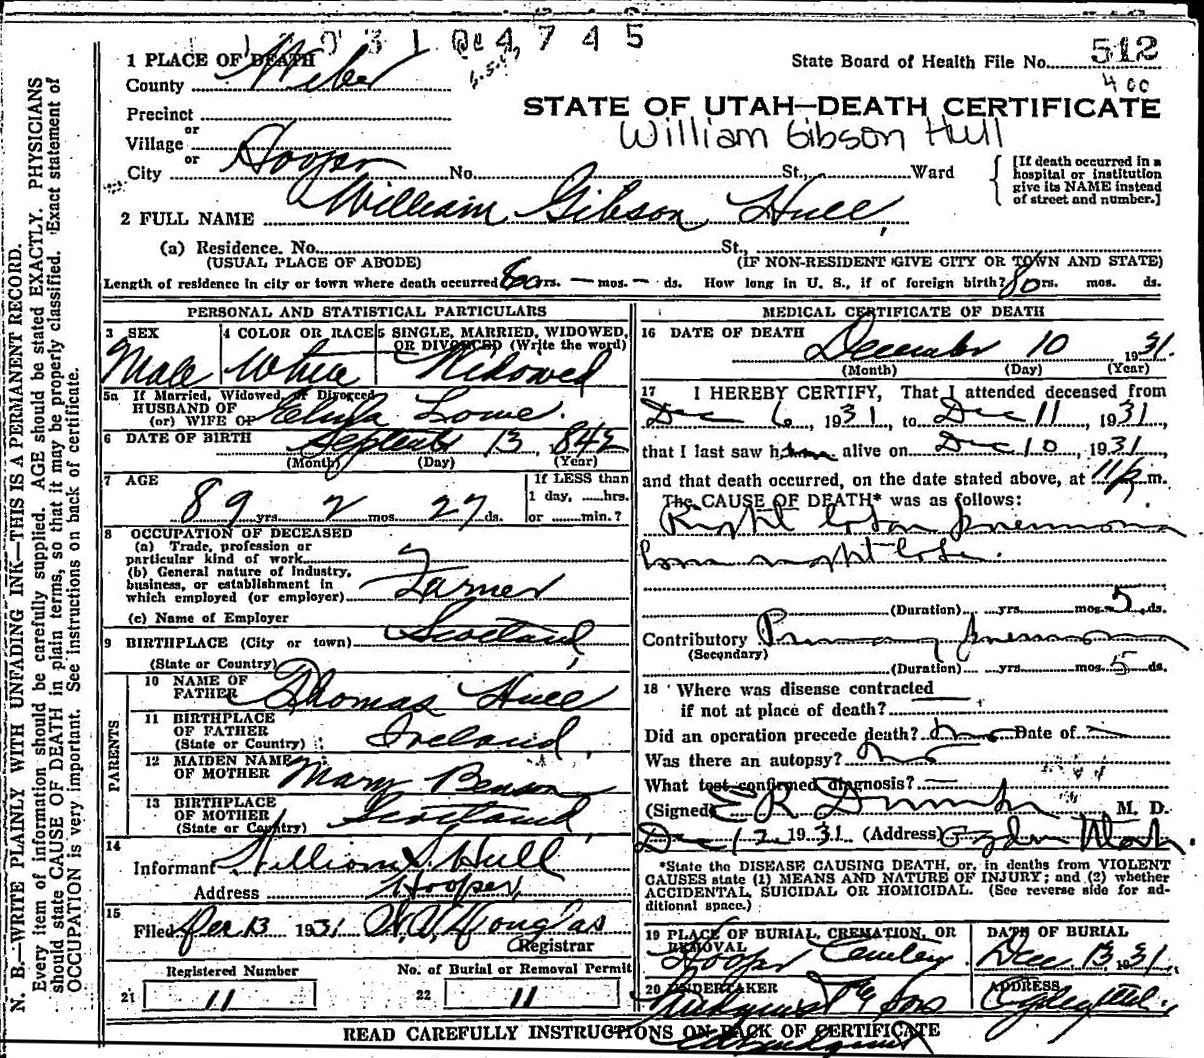 1 0 3 1 0 4 7 4 5
1 PLACE OF DEATH
County Weber
State Board of Health File No. 512
400
STATE OF UTAH—DEATH CERTIFICATE
William Gibson Hull
Precinct
or
Village
or
City Hooper No. St., Ward
[If death occurred in a
hospital or institution
give its NAME instead
of street and number.]
2 FULL NAME William Gibson Hull,
(a) Residence. No. St.,
(USUAL PLACE OF ABODE) (IF NON-RESIDENT GIVE CITY OR TOWN AND STATE)
Length of residence in city or town where death occurred yrs. — mos. — ds. How long in U. S., if of foreign birth? 80 yrs. mos. ds.
PERSONAL AND STATISTICAL PARTICULARS
3 SEX
Male
4 COLOR OR RACE
White
5 SINGLE, MARRIED, WIDOWED,
OR DIVORCED (Write the word)
Widowed
5a If Married, Widowed, or Divorced
HUSBAND OF
(or) WIFE OF Lowe.
6 DATE OF BIRTH September 13, 842
(Month) (Day) (Year)
7 AGE
89 yrs. 2 mos. 27 ds.
If LESS than
1 day, ......hrs.
or .......min.?
8 OCCUPATION OF DECEASED
(a) Trade, profession or
particular kind of work
(b) General nature of Industry,
business, or establishment in
which employed (or employer) Farmer
(c) Name of Employer
9 BIRTHPLACE (City or town) Scotland,
(State or Country)
PARENTS
10 NAME OF
FATHER Thomas Hull
11 BIRTHPLACE
OF FATHER
(State or Country) Ireland,
12 MAIDEN NAME
OF MOTHER Mary Benson
13 BIRTHPLACE
OF MOTHER
(State or Country) Scotland,
14
Informant William S. Hull
Address Hooper,
15
Filed Dec 13 1931 Douglas
Registrar
Registered Number
21 11
No. of Burial or Removal Permit
22 11
MEDICAL CERTIFICATE OF DEATH
16 DATE OF DEATH
December 10 1931.
(Month) (Day) (Year)
17 I HEREBY CERTIFY, That I attended deceased from
Dec 6, 1931, to Dec 11, 1931,
that I last saw him alive on Dec 10, 1931,
and that death occurred, on the date stated above, at m.
The CAUSE OF DEATH* was as follows:
Right lobar pneumonia
right lobe.
(Duration) yrs. mos. 5 ds.
Contributory Primary pneumonia
(Secondary)
(Duration) yrs. mos. 5 ds.
18 Where was disease contracted
if not at place of death? —
Did an operation precede death? no Date of —
Was there an autopsy? no
What test confirmed diagnosis? —
(Signed) E R M. D.
Dec 12 1931. (Address) Ogden Utah.
*State the DISEASE CAUSING DEATH, or, in deaths from VIOLENT
CAUSES state (1) MEANS AND NATURE OF INJURY; and (2) whether
ACCIDENTAL, SUICIDAL OR HOMICIDAL. (See reverse side for ad-
ditional space.)
19 PLACE OF BURIAL, CREMATION, OR
REMOVAL
Hooper Cemetery
DATE OF BURIAL
Dec. 13, 1931.
20 UNDERTAKER
& Sons
ADDRESS
Ogden Utah.
READ CAREFULLY INSTRUCTIONS ON BACK OF CERTIFICATE
N. B.—WRITE PLAINLY WITH UNFADING INK—THIS IS A PERMANENT RECORD.
Every item of information should be carefully supplied. AGE should be stated EXACTLY. PHYSICIANS
should state CAUSE OF DEATH in plain terms, so that it may be properly classified. Exact statement of
OCCUPATION is very important. See instructions on back of certificate.